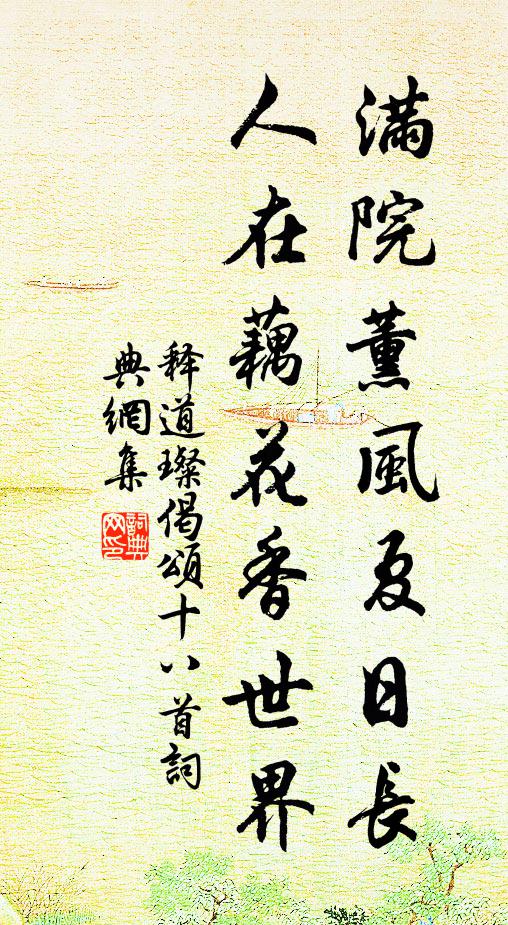 滿院薰風夏日長
人在藕花香世界
释道璨偈頌十八首詞
典網集
詞典
网印